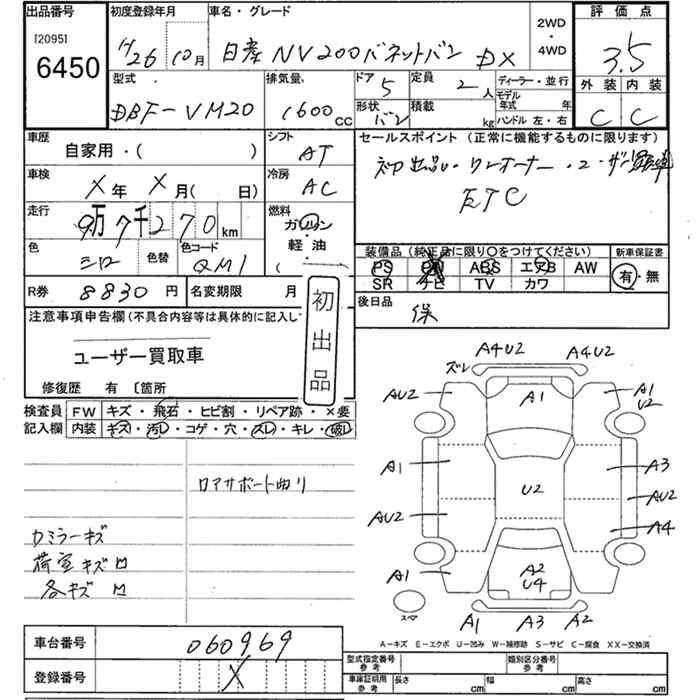 出品番号 初度登録年月 車名・グレード 2WD・4WD 評価点
[2095]
6450 H26 10月 日産 NV200バネットバン DX 3.5
型式 排気量 ドア 5 定員 2人 ディーラー・並行 外装 内装
モデル年式 年
DBF-VM20 1600CC 形状 バン 積載 kg ハンドル 左・右 C C
車歴 シフト セールスポイント (正常に機能するものに限ります)
自家用・( ) AT 初出品・ワンオーナー・ユーザー買取車
車検 X年 X月( 日) 冷房 AC ETC
走行 9万7千270km 燃料 ガソリン
軽油
( )
色 シロ 色替 色コード QM1
装備品 (純正品に限り〇をつけてください) 新車保証書
PS PW ABS エアB AW 有・無
SR ナビ TV カワ
R券 8830円 名変期限 月 後日品 保
注意事項申告欄(不具合内容等は具体的に記入し
初出品
ユーザー買取車
修復歴 有 〔箇所
検査員記入欄 FW キズ・飛石・ヒビ割・リペア跡・×要
内装 キズ・汚レ・コゲ・穴・スレ・キレ・破レ
ロアサポート曲り
カミラーキズ
荷室キズ凹
各キズ凹
A4U2 A4U2
ズレ
AU2 A1 A1 U2
A1 A3
U2
AU2 AU2
A4
A1 A2 U4
スペア
A1 A3 A2
A-キズ E-エクボ U-凹み W-補修跡 S-サビ C-腐食 XX-交換済
車台番号 060969
登録番号 X
型式指定番号 参考 類別区分番号 参考
車庫証明用 参考 長さ cm 幅 cm 高さ cm